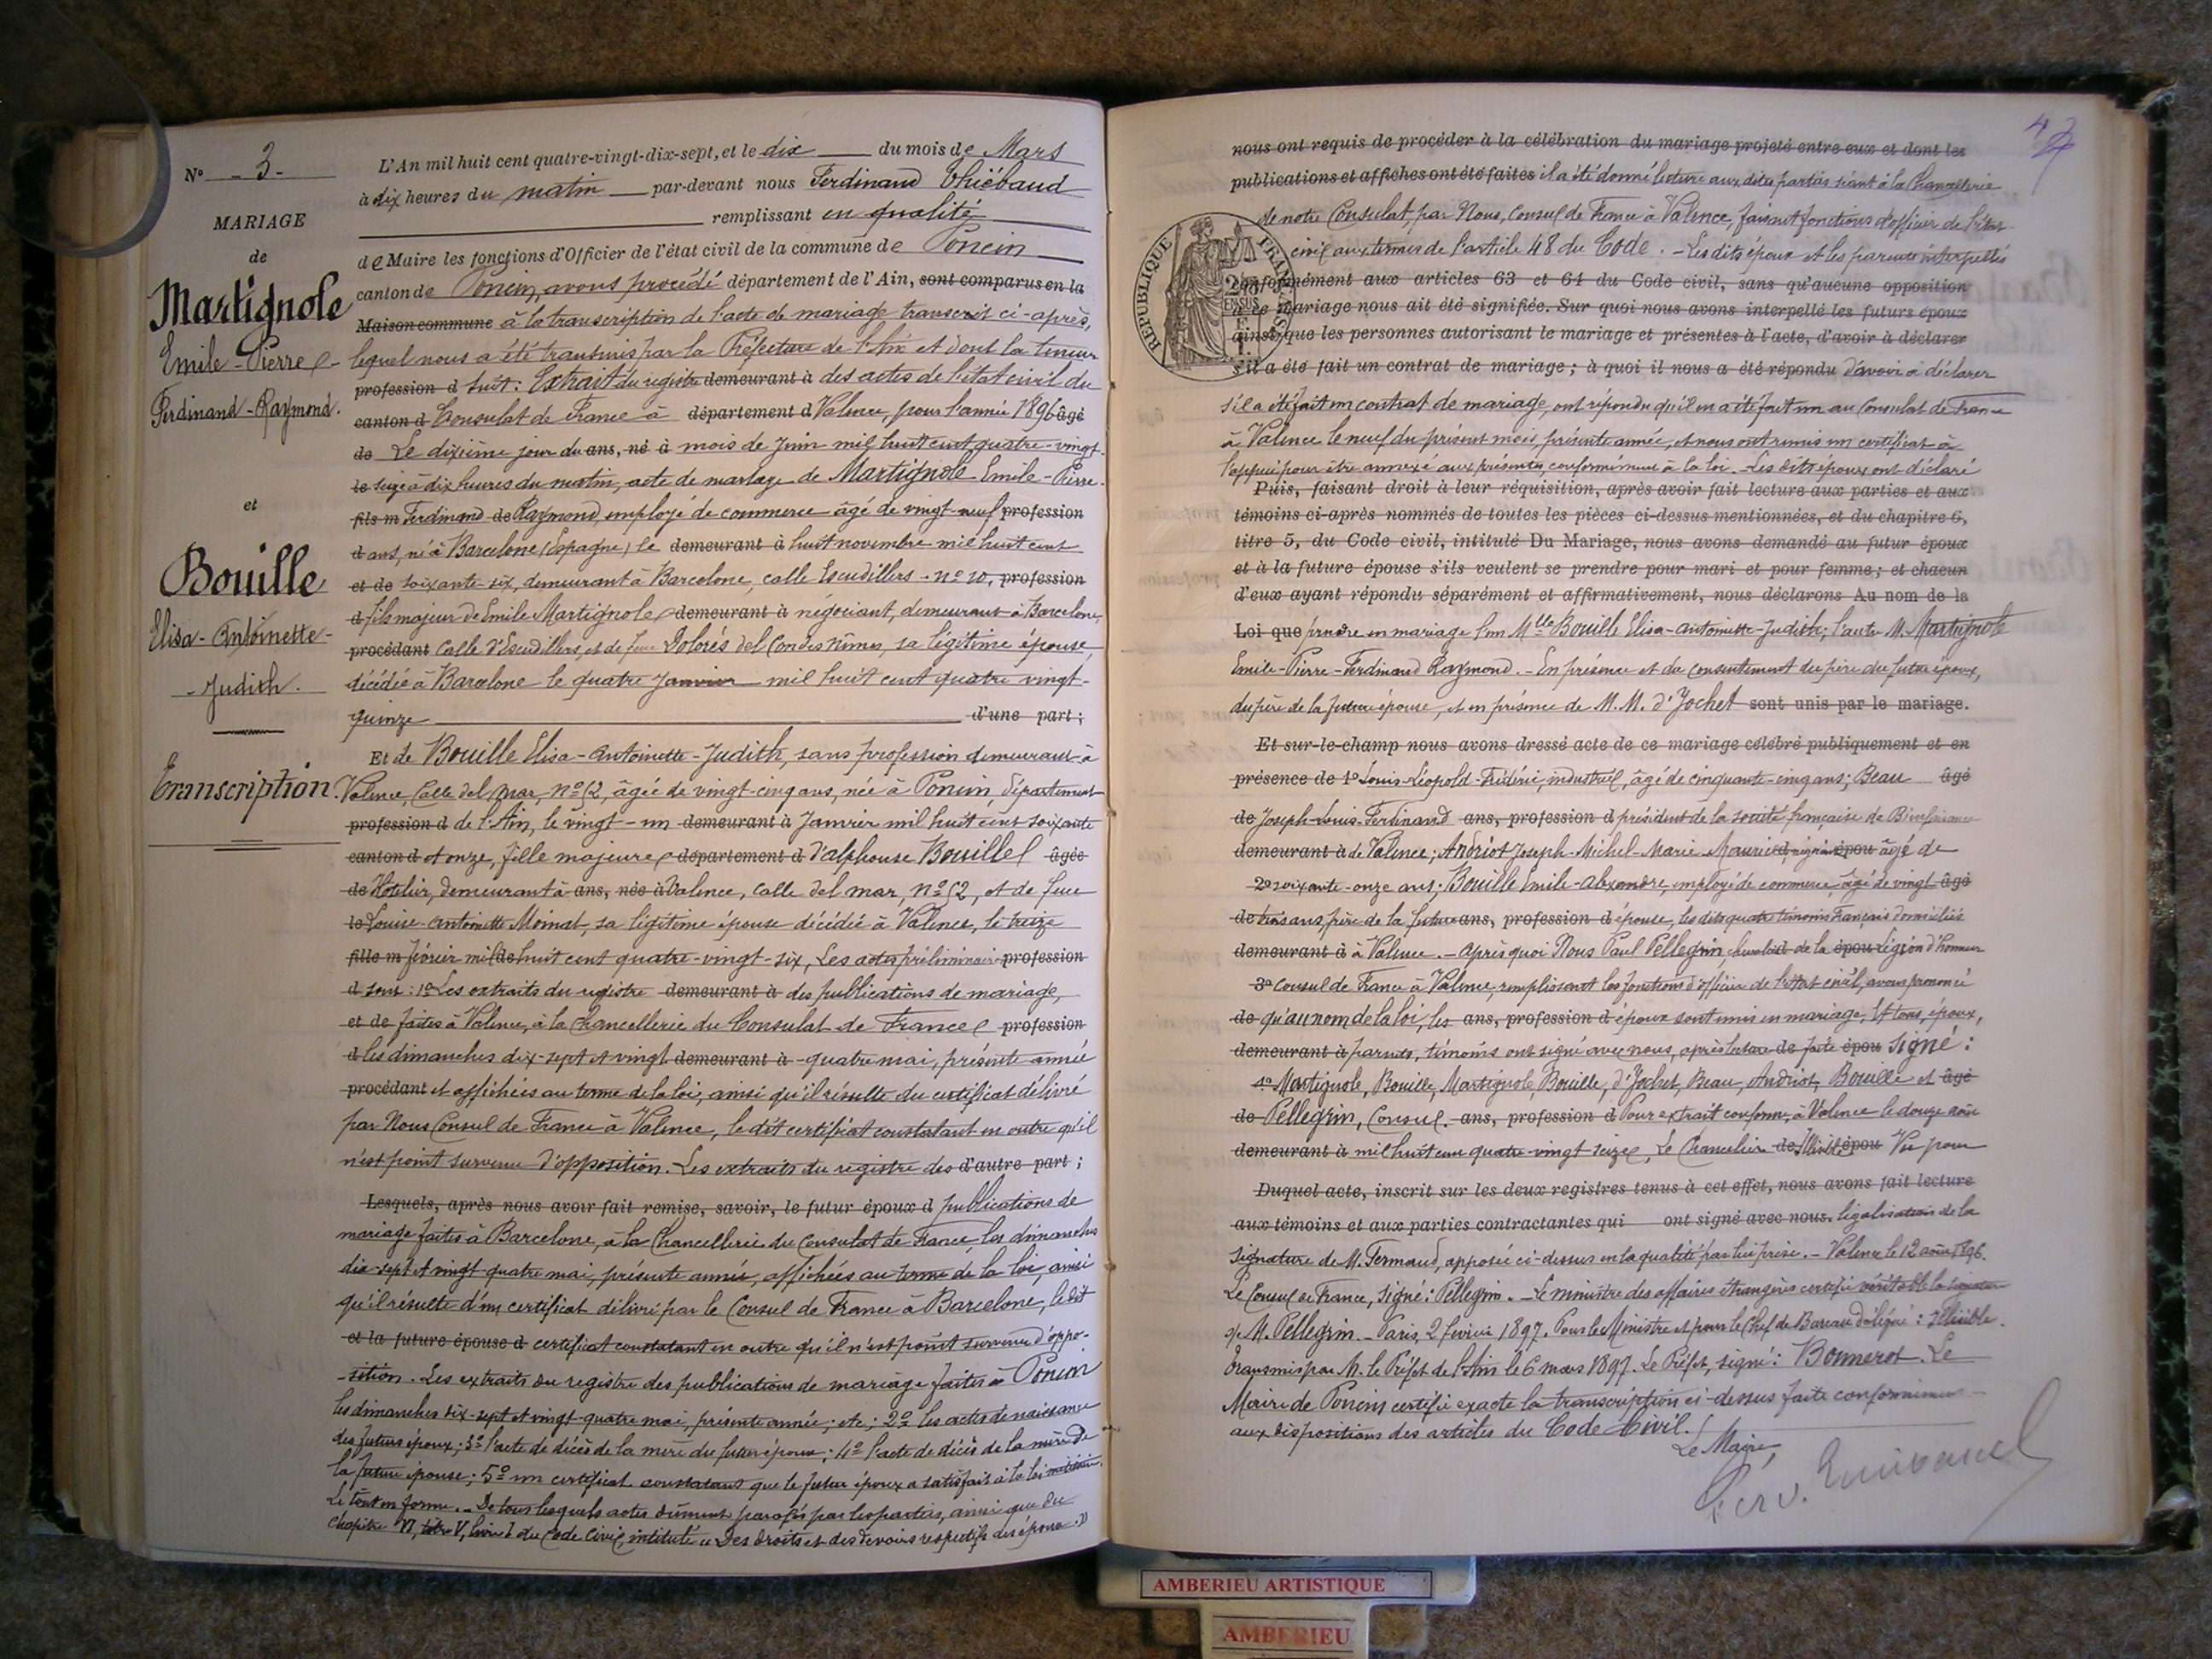 N° - 3 -
MARIAGE
de
Martignole
Emile-Pierre
Ferdinand-Raymond.
et
Bouille
Elisa-Antoinette-
-Judith.
Transcription.
L'An mil huit cent quatre-vingt-dix-sept, et le dix du mois de Mars
à dix heures du matin par-devant nous Ferdinand Thiébaud
remplissant en qualité
de Maire les fonctions d'Officier de l'état civil de la commune de Poncin
canton de Poncin, avons procédé département de l'Ain, sont comparus en la
Maison commune à la transcription de l'acte de mariage transcrit ci-après,
lequel nous a été transmis par la Préfecture de l'Ain et dont la teneur
profession d suit: Extrait du registre demeurant à des actes de l'état civil du
canton d Consulat de France à département d Valence, pour l'année 1896 âgé
de Le dixième jour du ans, né à mois de Juin mil huit cent quatre-vingt-
le seize à dix heures du matin, acte de mariage de Martignole Emile-Pierre-
fils m Ferdinand de Raymond, employé de commerce âgé de vingt-neuf profession
d ans, né à Barcelone (Espagne) le demeurant à huit novembre mil huit cent
et de soixante-six, demeurant à Barcelone, calle Escudillers - n° 10, profession
d fils majeur de Emile Martignole demeurant à négociant, demeurant à Barcelone,
procédant Calle d'Escudillers, et de feue Dolorès del Condes Nimes, sa légitime épouse,
décédée à Barcelone le quatre Janvier mil huit cent quatre vingt-
quinze d'une part;
Et de Bouille Elisa-Antoinette-Judith, sans profession demeurant à
Valence, Calle del Mar, n° 52, âgée de vingt-cinq ans, née à Poncin, département
profession d de l'Ain, le vingt-un demeurant à Janvier mil huit cent soixante
canton d et onze, fille majeure département d d'Alphonse Bouille âgée
de Hôtelier, demeurant à ans, née à Valence, calle del mar, n° 52, et de feue
le Louise Antoinette Moinat, sa légitime épouse décédée à Valence, le treize
fille m février mil de huit cent quatre-vingt-six, Les actes préliminaires profession
d sont: 1° Les extraits du registre demeurant à des publications de mariage,
et de faites à Valence, à la Chancellerie du Consulat de France profession
d les dimanches dix-sept et vingt demeurant à -quatre mai, présente année
procédant et affichées au terme de la loi, ainsi qu'il résulte du certificat délivré
par Nous Consul de France à Valence, le dit certificat constatant en outre qu'il
n'est point survenu d'opposition. Les extraits du registre des d'autre part;
Lesquels, après nous avoir fait remise, savoir, le futur époux d publications de
mariage faites à Barcelone, à la Chancellerie du Consulat de France, les dimanches
dix-sept et vingt quatre mai, présente année, affichées au terme de la loi, ainsi
qu'il résulte d'un certificat délivré par le Consul de France à Barcelone, le dit
et la future épouse d certificat constatant en outre qu'il n'est point survenu d'oppo-
-sition. Les extraits du registre des publications de mariage faites à Poncin
les dimanches dix-sept et vingt-quatre mai, présente année; etc; 2° les actes de naissance
des futurs époux; 3° l'acte de décès de la mère du futur époux; 4° l'acte de décès de la mère de
la future épouse; 5° un certificat constatant que le futur époux a satisfait à la loi militaire.
Le tout en forme. - De tous lesquels actes dûment parafés par les parties, ainsi que du
chapitre VI, titre V, livre I du Code Civil, intitulé « Des droits et des devoirs respectifs des époux »
nous ont requis de procéder à la célébration du mariage projeté entre eux et dont les
publications et affiches ont été faites il a été donné lecture aux dites parties séant à la Chancellerie
de notre Consulat, par Nous, Consul de France à Valence, faisant fonctions d'officier de l'état
civil aux termes de l'article 48 du Code. - Les dits époux et les parents interpellés
conformément aux articles 63 et 64 du Code civil, sans qu'aucune opposition
à ce mariage nous ait été signifiée. Sur quoi nous avons interpellé les futurs époux
ainsi que les personnes autorisant le mariage et présentes à l'acte, d'avoir à déclarer
s'il a été fait un contrat de mariage; à quoi il nous a été répondu d'avoir à déclarer
REPUBLIQUE FRANÇAISE
s'il a été fait un contrat de mariage, ont répondu qu'il en a été fait un au Consulat de France
à Valence le neuf du présent mois, présente année, et nous ont remis un certificat à
l'appui pour être annexé aux présentes, conformément à la loi. - Les dits époux ont déclaré
Puis, faisant droit à leur réquisition, après avoir fait lecture aux parties et aux
témoins ci-après nommés de toutes les pièces ci-dessus mentionnées, et du chapitre 6,
titre 5, du Code civil, intitulé Du Mariage, nous avons demandé au futur époux
et à la future épouse s'ils veulent se prendre pour mari et pour femme; et chacun
d'eux ayant répondu séparément et affirmativement, nous déclarons Au nom de la
Loi que prendre en mariage l'un Mlle Bouille Elisa-Antoinette-Judith; l'autre M. Martignole
Emile-Pierre-Ferdinand Raymond. - En présence et du consentement du père du futur époux,
du père de la future épouse, et en présence de M.M. d'Jochet sont unis par le mariage.
Et sur-le-champ nous avons dressé acte de ce mariage célébré publiquement et en
présence de 1° Louis-Léopold-Frédéric, industriel, âgé de cinquante-cinq ans; Beau âgé
de Joseph-Louis-Ferdinand ans, profession d président de la société française de Bienfaisance
demeurant à de Valence; Andriot Joseph-Michel-Marie-Maurice épou âgé de
2° soixante-onze ans; Bouille Emile-Alexandre, employé de commerce, âgé de vingt âgé
de trois ans, frère de la future ans, profession d épouse, les dits quatre témoins Français domiciliés
demeurant à à Valence. - Après quoi Nous Paul Pellegrin, chevalier de la épou Légion d'honneur
3° Consul de France à Valence, remplissant les fonctions d'officier de l'état civil, avons prononcé
de qu'au nom de la loi, les ans, profession d époux sont unis en mariage, Et tous, époux,
demeurant à parents, témoins ont signé avec nous, après lecture de faite épou Signé:
4° Martignole, Bouille, Martignole, Bouille, d'Jochet, Beau, Andriot, Bouille et âgé
de Pellegrin, Consul. ans, profession d Pour extrait conforme, à Valence le douze août
demeurant à mil huit cent quatre-vingt seize, Le Chancelier de Illisible épou Vu pour
Duquel acte, inscrit sur les deux registres tenus à cet effet, nous avons fait lecture
aux témoins et aux parties contractantes qui ont signé avec nous. légalisation de la
signature de M. Fermaud, apposée ci-dessus en la qualité par lui prise. - Valence le 12 août 1896.
Le Consul de France, signé: Pellegrin. - Le ministre des affaires étrangères certifie véritable la signature
de M. Pellegrin. - Paris, 2 février 1897. Pour le Ministre et pour le Chef de Bureau délégué: Illisible.
Transmis par M. le Préfet de l'Ain le 6 mars 1897. Le Préfet, signé: Bonnerot. Le
Maire de Poncin certifie exacte la transcription ci-dessus faite conformément
aux dispositions des articles du Code Civil.
Le Maire,
AMBERIEU ARTISTIQUE
AMBERIEU